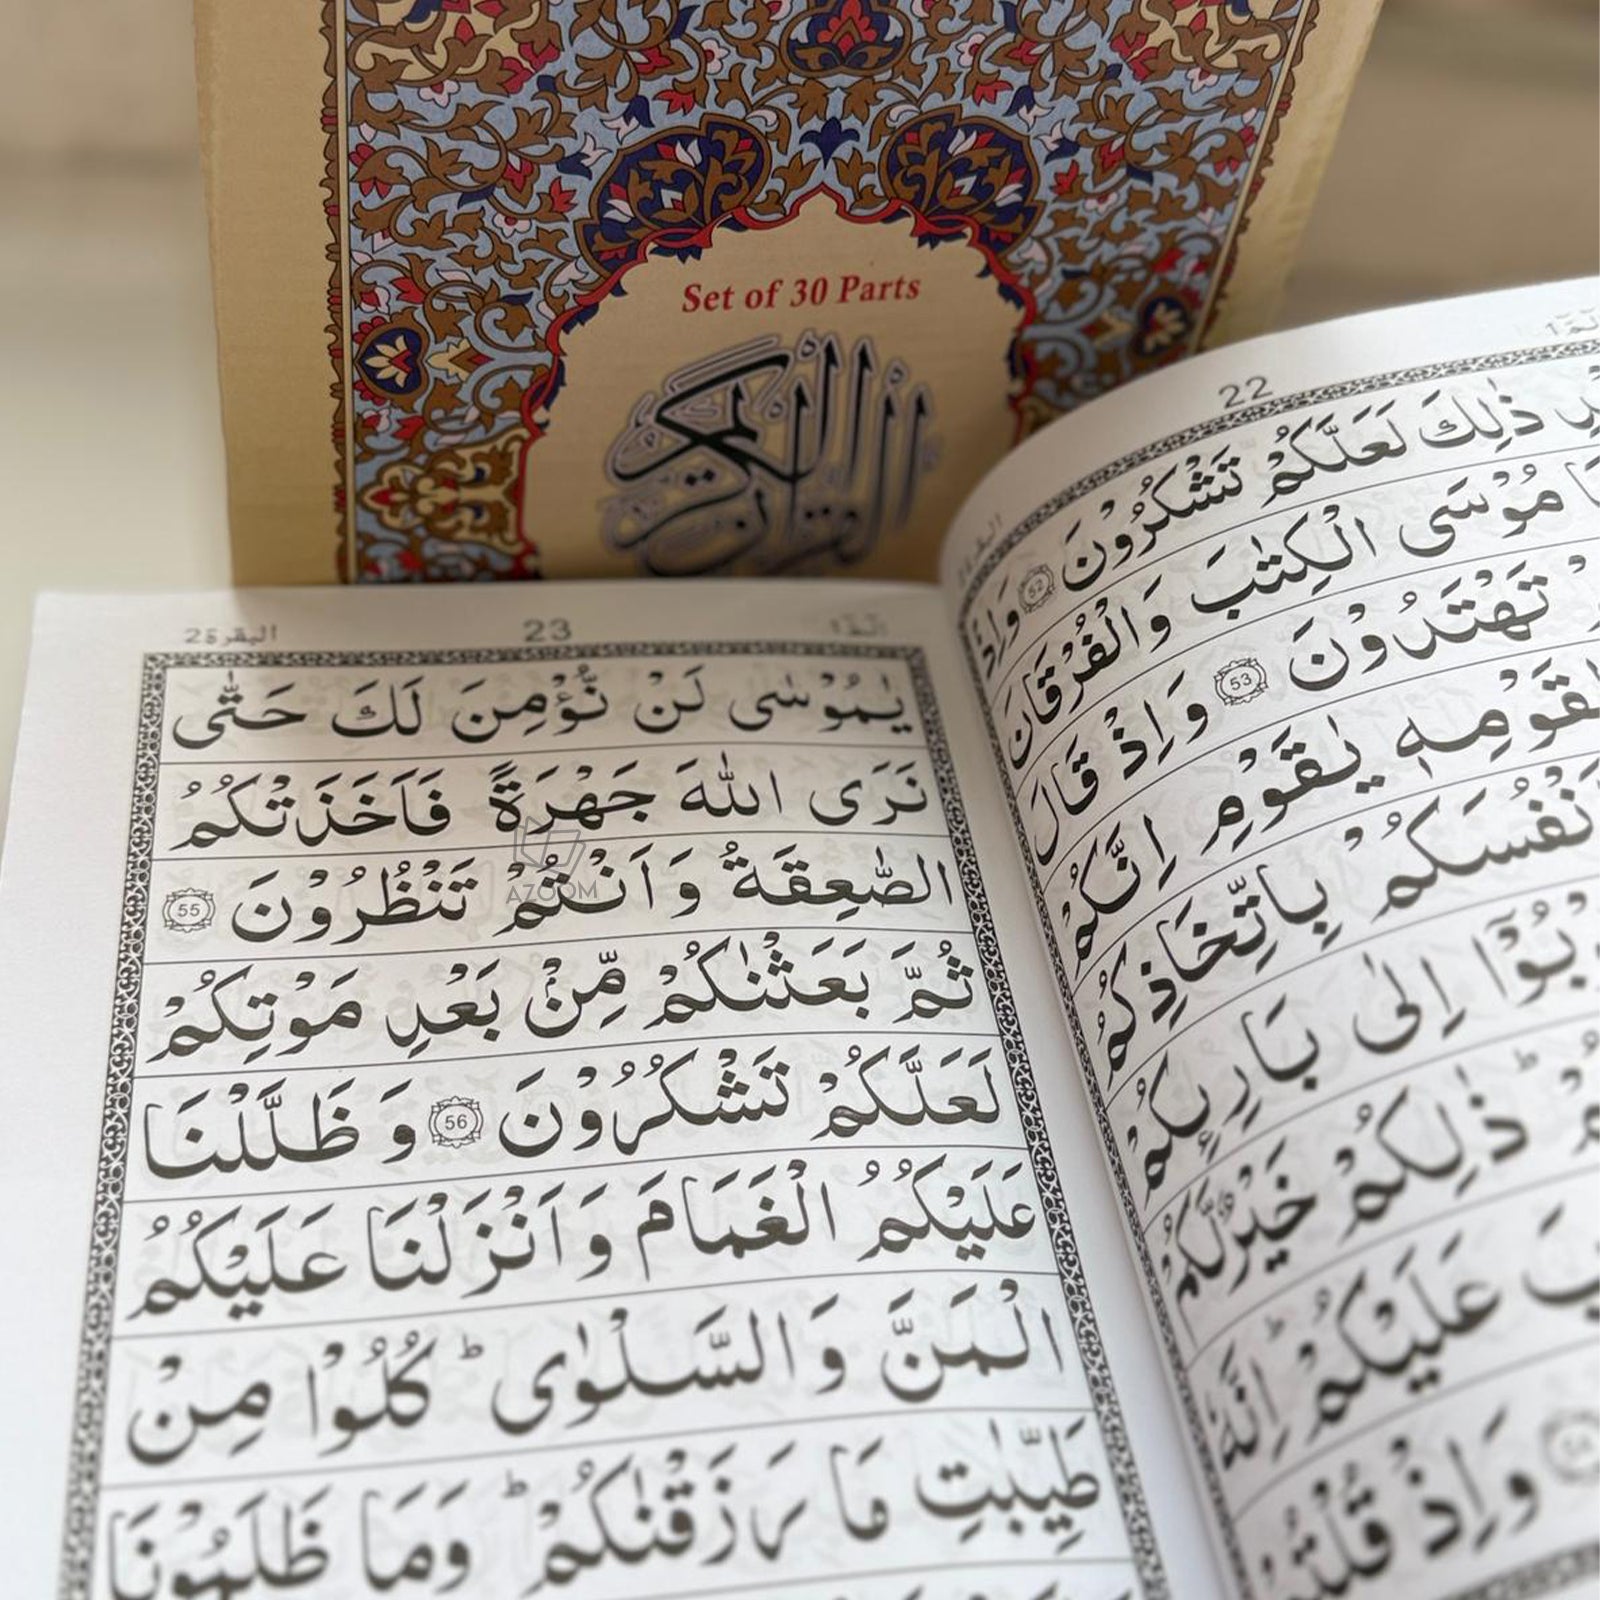 Set of 30 Parts
القرآن الكريم
22
ذٰلِكَ لَعَلَّكُمْ تَشْكُرُوْنَ 52 وَاِذْ
مُوْسَى الْكِتٰبَ وَالْفُرْقَانَ
تَهْتَدُوْنَ 53 وَاِذْ قَالَ
لِقَوْمِهٖ يٰقَوْمِ اِنَّكُمْ
اَنْفُسَكُمْ بِاتِّخَاذِكُمُ
اِلٰى بَارِئِكُمْ
ذٰلِكُمْ خَيْرٌ لَّكُمْ
عَلَيْكُمْ ؕ اِنَّهٗ
54 وَاِذْ قُلْتُمْ
البقرة 2
23
الٓمّٓ 1
يٰمُوْسٰى لَنْ نُّؤْمِنَ لَكَ حَتّٰى
نَرَى اللّٰهَ جَهْرَةً فَاَخَذَتْكُمُ
الصّٰعِقَةُ وَاَنْتُمْ تَنْظُرُوْنَ 55
ثُمَّ بَعَثْنٰكُمْ مِّنْۢ بَعْدِ مَوْتِكُمْ
لَعَلَّكُمْ تَشْكُرُوْنَ 56 وَظَلَّلْنَا
عَلَيْكُمُ الْغَمَامَ وَاَنْزَلْنَا عَلَيْكُمُ
الْمَنَّ وَالسَّلْوٰى ؕ كُلُوْا مِنْ
طَيِّبٰتِ مَا رَزَقْنٰكُمْ ؕ وَمَا ظَلَمُوْنَا
AZOOM